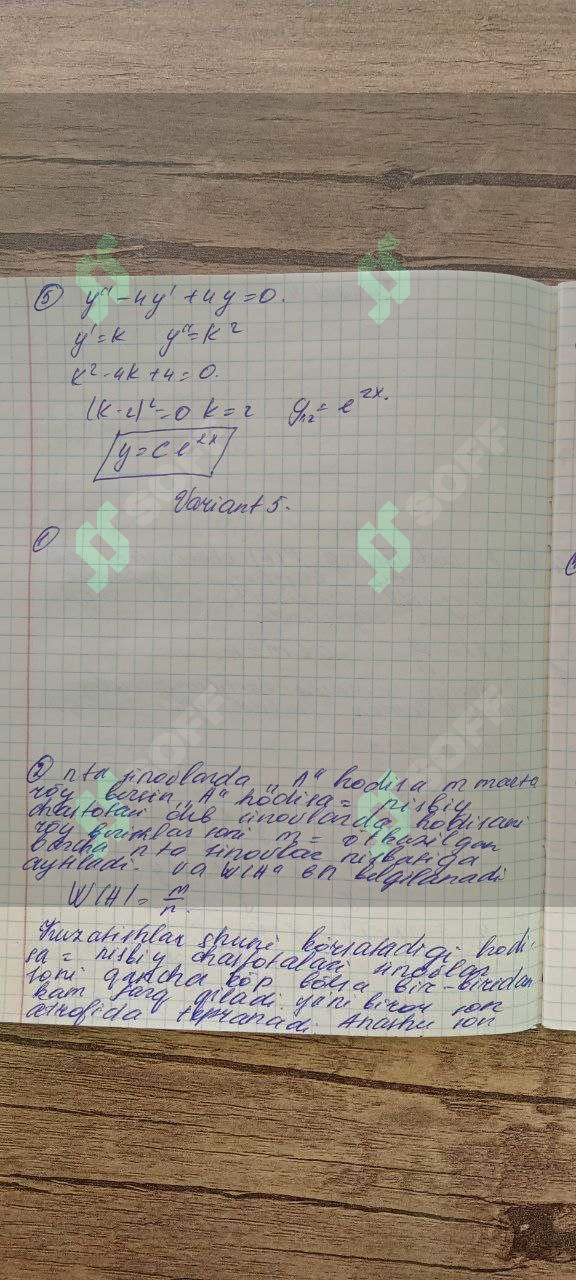 ⑤ y" - 4y' + 4y = 0.
y' = k y" = k²
k² - 4k + 4 = 0.
(k-2)² = 0 k = 2 y₁,₂ = e²ˣ.
y = C e²ˣ
Variant 5.
①
② n ta sinovlarda „A" hodisa m marta
roy bersin „A" hodisa = nisbiy
chastotasi deb sinovlarda hodisani
roy soni m = o'tkazilgan
barcha n ta sinovlar nisbatiga
aytiladi. va W(A) belgilanadi
W(A) = m/n.
Kuzatishlar shuni körsatadigi hodi-
sa = nisbiy chastotalari sinovlar
soni qancha köp bölsa bir-biridan
kam farq qiladi yani biron son
atrofida tepranadi. Anashu son
SOFF
SOFF
SOFF
SOFF